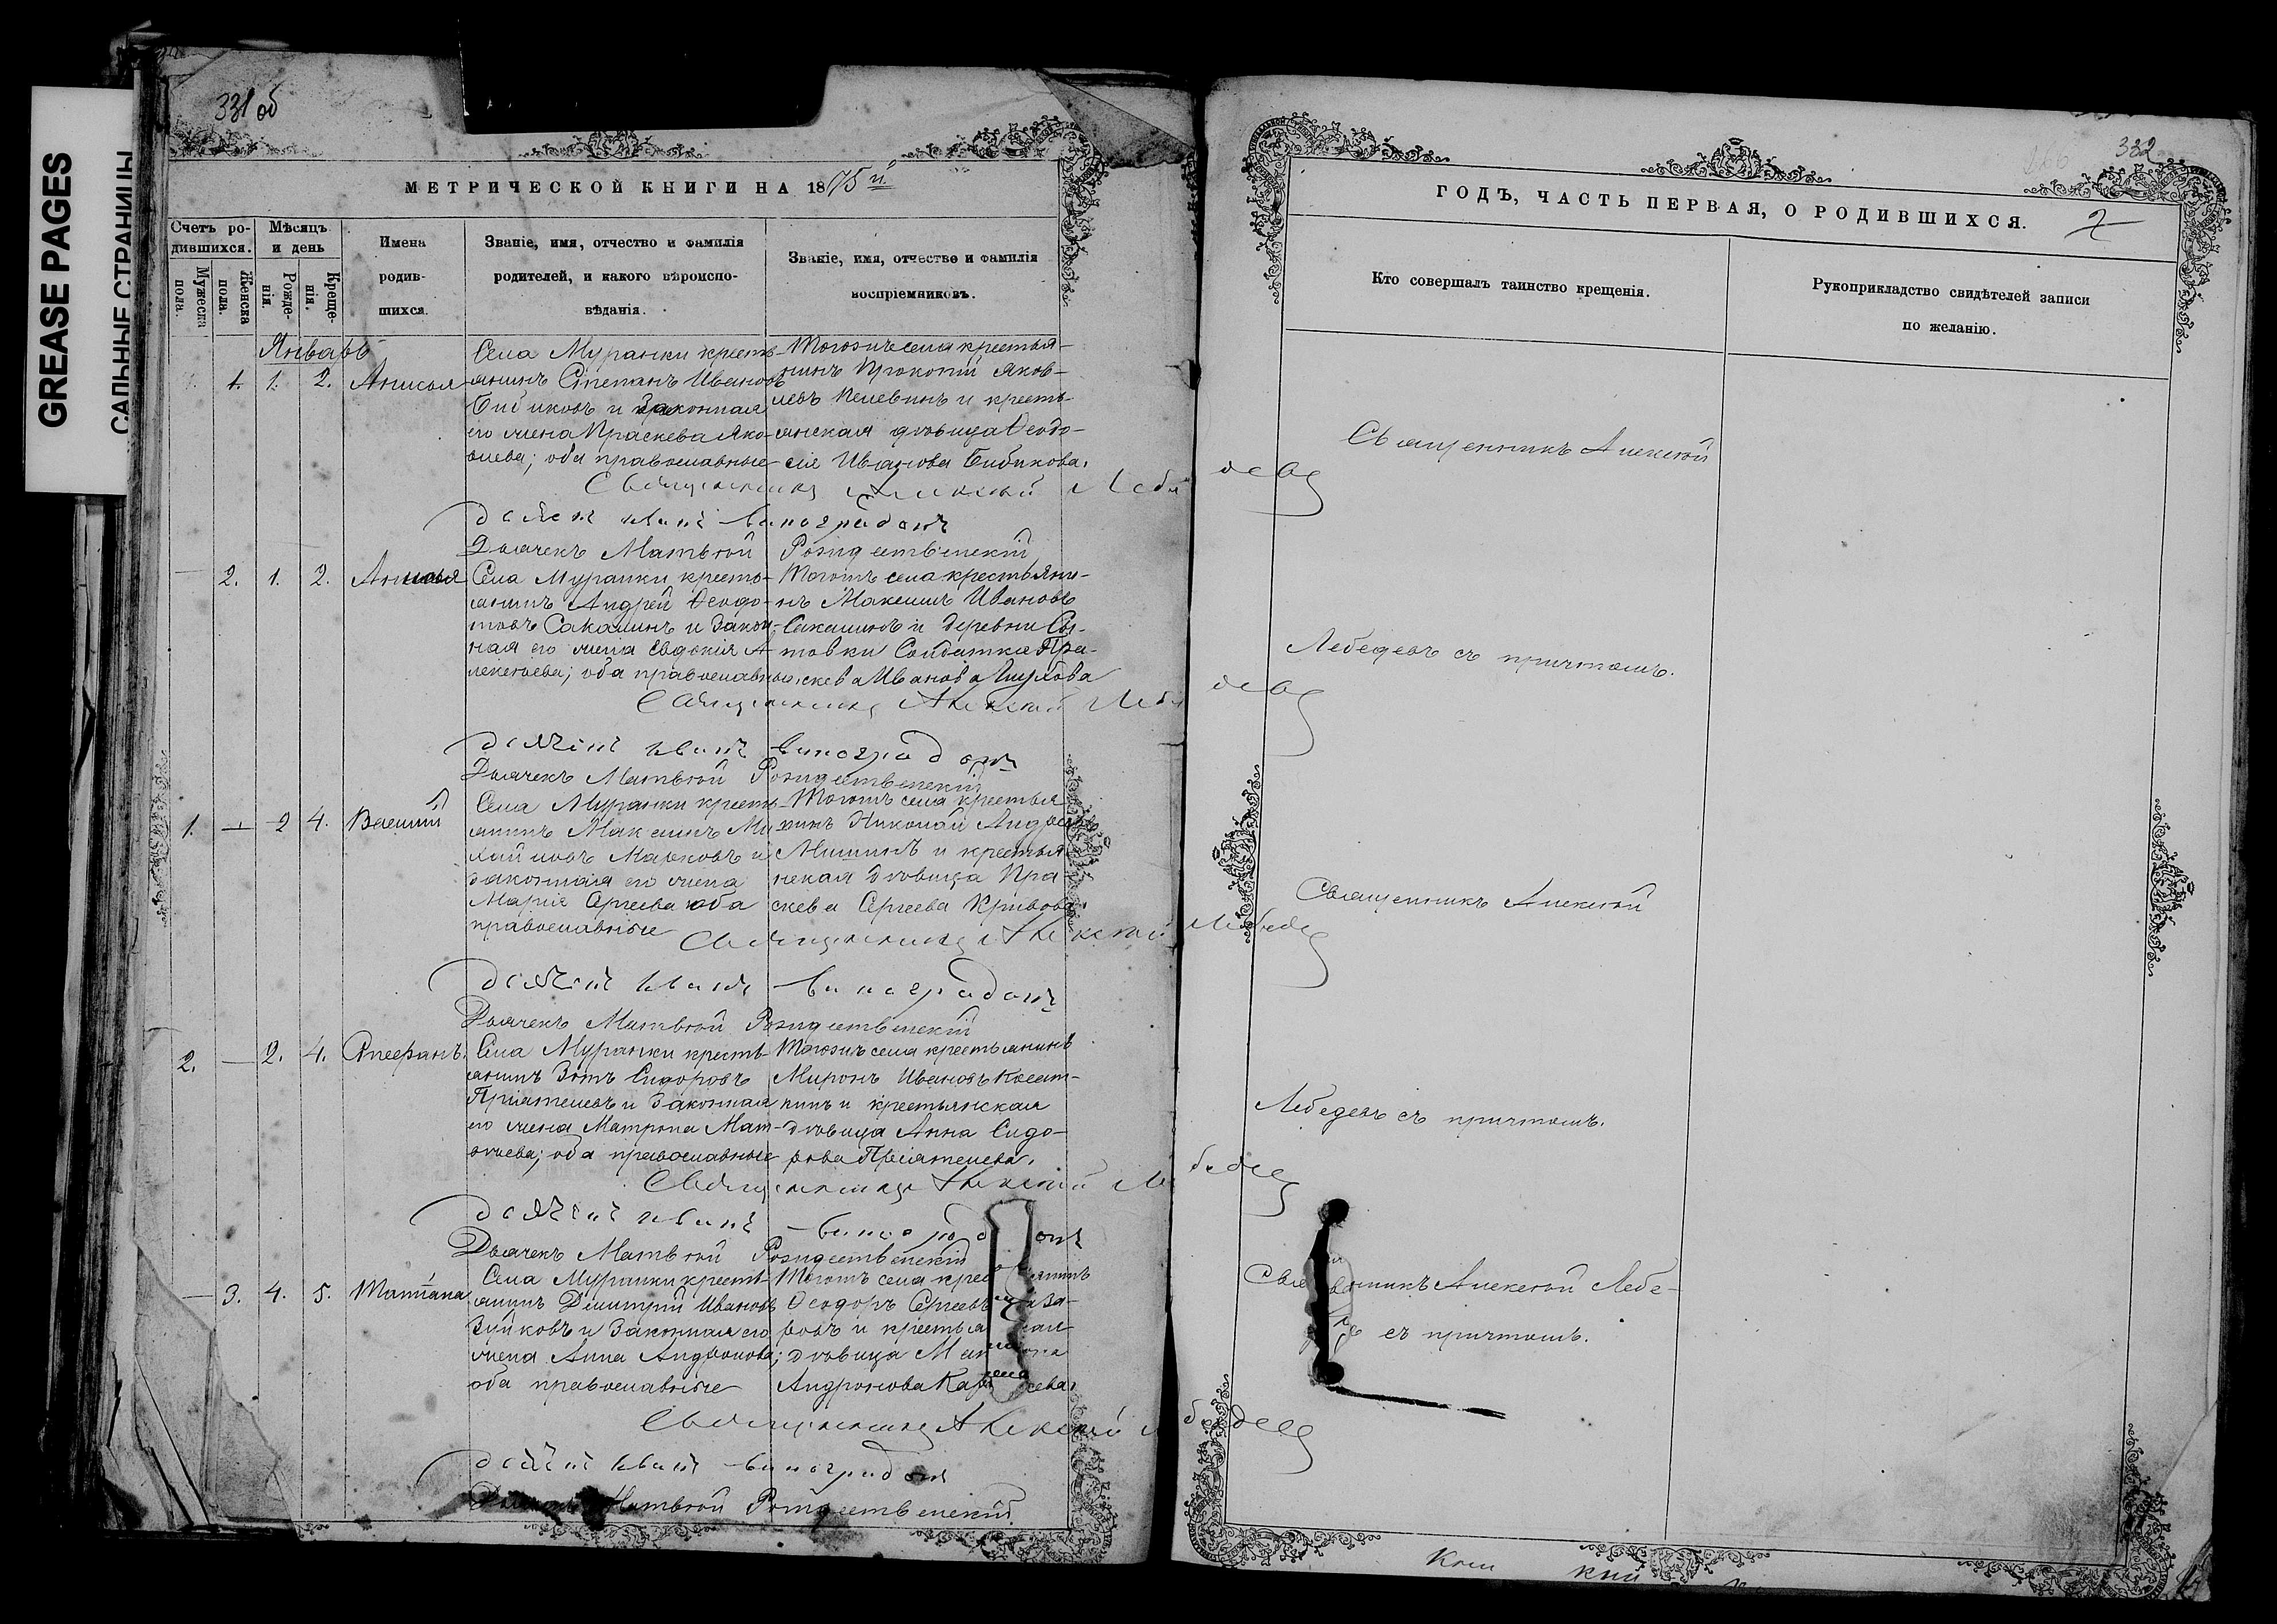 GREASE PAGES
САЛЬНЫЕ СТРАНИЦЫ
331 об
МЕТРИЧЕСКОЙ КНИГИ НА 1875й
Счетъ ро-
дившихся.
Мужеска
пола.
Женска
пола.
Мѣсяцъ
и день
Рожде-
нія.
Креще-
нія.
Имена
родив-
шихся.
Званіе, имя, отчество и фамилія
родителей, и какого вѣроиспо-
вѣданія.
Званіе, имя, отчество и фамилія
воспріемниковъ.
Январь
1. 1. 2. Анисья
Села Муранки кресть-
янинъ Степанъ Ивановъ
Бибиковъ и законная
его жена Праскева Яко-
влева; оба православные
Тогожъ села крестья-
нинъ Прокопій Яков-
левъ Пелевинъ и кресть-
янская дѣвица Ѳеодо-
сія Иванова Бибикова.
Священникъ Алексѣй Лебедевъ
Дьячекъ Матвѣй Рождественскій
— 2. 1. 2. Анисья
Села Муранки кресть-
янинъ Андрей Ѳеодо-
товъ Сакалинъ и закон-
ная его жена Евдокія А-
лексѣева; оба православные
Тогожъ села крестьяни-
нъ Максимъ Ивановъ
Сакалинъ и деревни
товки Солдатка Пра-
скева Иванова
Священникъ Алексѣй Лебедевъ
Дьячекъ Матвѣй Рождественскій
1. — 2 4. Василій
Села Муранки кресть-
янинъ Максимъ Ми-
хайловъ Марковъ и
законная его жена
Марія Сергеева оба
православные
Тогожъ села крестья-
нинъ Николай Андреевъ
Мишинъ и крестья-
нская дѣвица Пра-
скева Сергеева Кривова
Священникъ Алексѣй Лебедевъ
Дьячекъ Матвѣй Рождественскій
2. — 2. 4. Стефанъ.
Села Муранки кресть-
янинъ Зотъ Сидоровъ
Пріятелевъ и законная
его жена Матрона Мат-
вѣева; оба православные
Тогожъ села крестьянинъ
Миронъ Ивановъ Косат-
кинъ и крестьянская
дѣвица Анна Сидо-
рова Пріятелева.
Священникъ Алексѣй Лебедевъ
Дьячекъ Матвѣй Рождественскій
— 3. 4. 5. Татіана
Села Муранки кресть-
янинъ Димитрій Ивановъ
Зуйковъ и законная его
жена Анна Андронова;
оба православные
Тогожъ села крестьянинъ
Ѳеодоръ Сергеевъ
ровъ и крестьянская
дѣвица
Андронова
Священникъ Алексѣй Лебедевъ
Дьячекъ Матвѣй Рождественскій
332
2
ГОДЪ, ЧАСТЬ ПЕРВАЯ, О РОДИВШИХСЯ.
Кто совершалъ таинство крещенія.
Рукоприкладство свидѣтелей записи
по желанію.
Священникъ Алексѣй
Лебедевъ съ причтомъ.
Священникъ Алексѣй
Лебедевъ съ причтомъ.
Священникъ Алексѣй Лебе-
съ причтомъ.